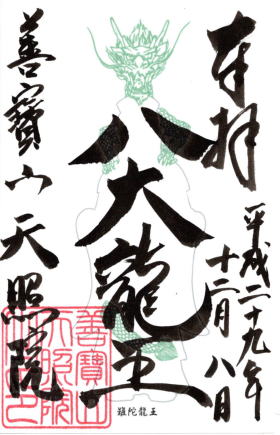 奉拝
平成二十九年
十二月八日
八大龍王
難陀龍王
善寳山天照院
善寳山
天照院